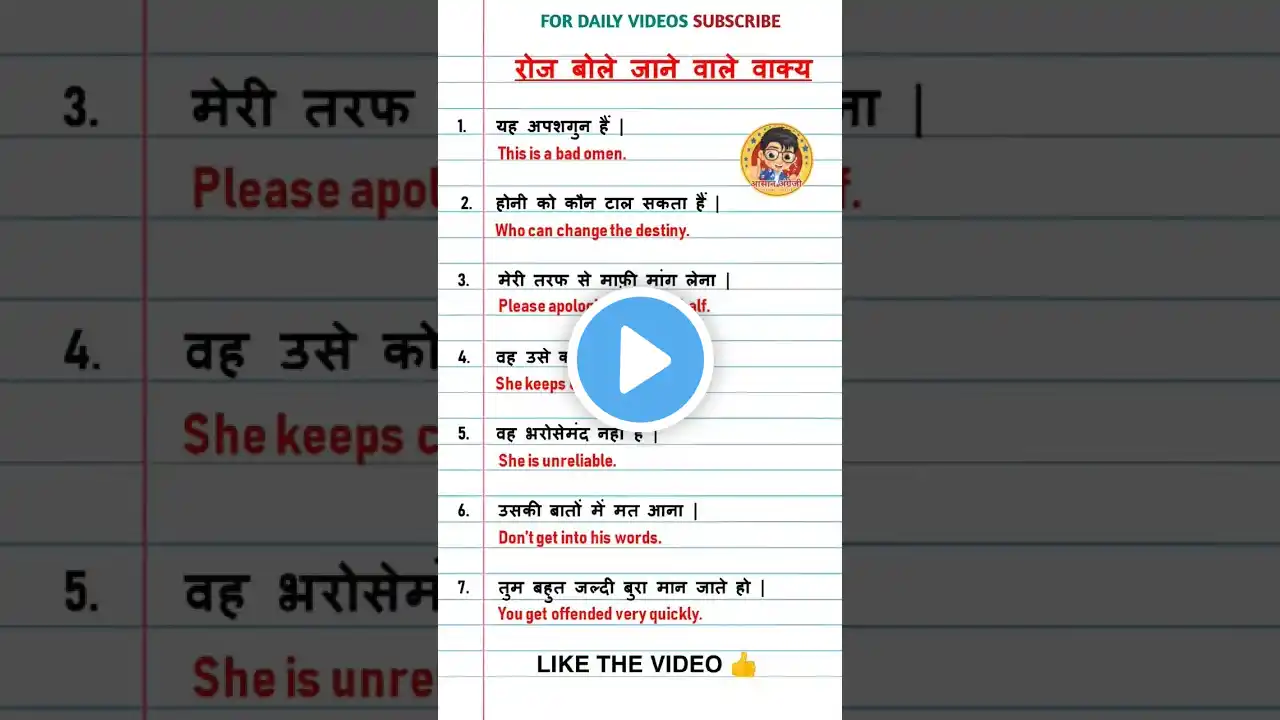 FOR DAILY VIDEOS SUBSCRIBE
रोज बोले जाने वाले वाक्य
1. यह अपशगुन हैं |
This is a bad omen.
आसान अंग्रेजी
2. होनी को कौन टाल सकता हैं |
Who can change the destiny.
3. मेरी तरफ से माफ़ी मांग लेना |
Please apolo
alf.
4. वह उसे
She keeps
5. वह भरोसेमंद नहीं है |
She is unreliable.
6. उसकी बातों में मत आना |
Don't get into his words.
7. तुम बहुत जल्दी बुरा मान जाते हो |
You get offended very quickly.
LIKE THE VIDEO
3. मेरी तरफ
ना |
Please apol
f.
4. वह उसे को
She keeps c
5. वह भरोसेम
She is unre